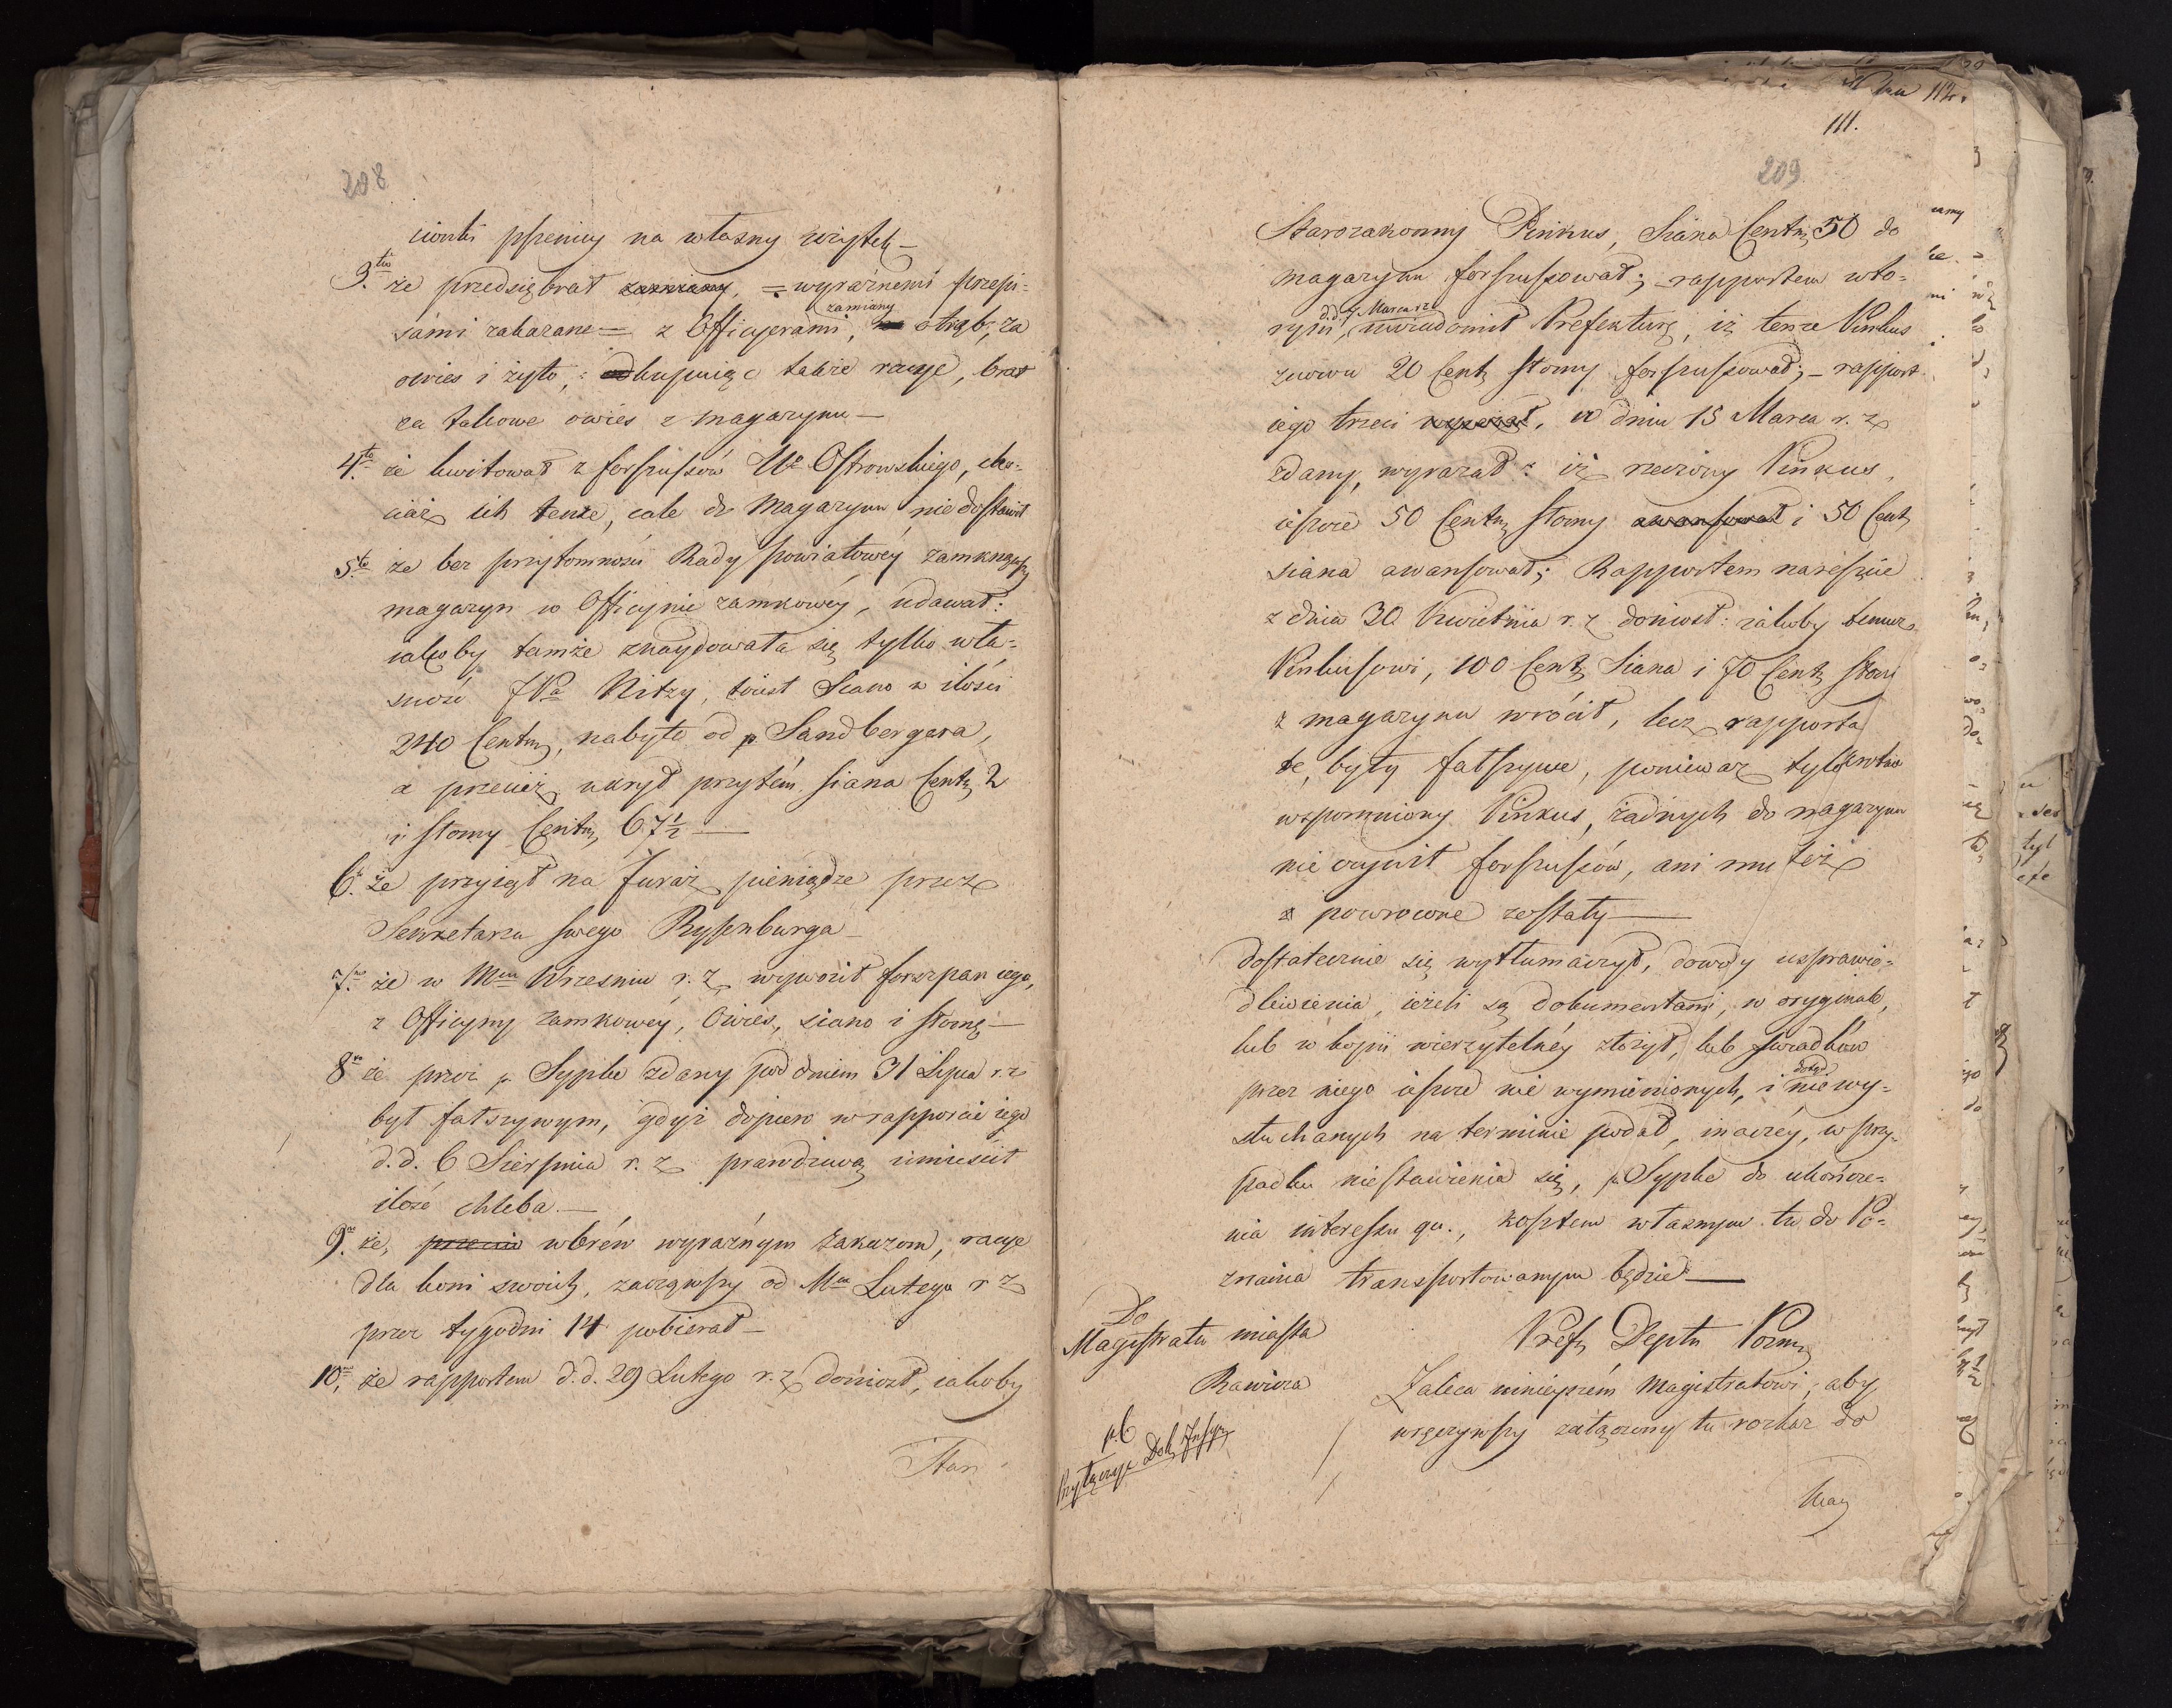 208
ćwierci pszenicy na własny użytek —
3.tio że przedsiębrał zamiany, = wyraźnemi przepi=
sami zakazane = z Officyerami, zamiany otrąb, za
owies i żyto, : odkupuiąc takie racye, brał
za takowe owies z magazynu —
4.to że kwitował z forszusów Wo Ostrowskiego, cho=
ciaż ich tenże, cale do Magazynu nie dostawił
5.to że bez przytomności Rady powiatowéy zamknąwszy
magazyn w Officynie zamkowéy, udawał:
iakoby tamże znaydowała się tylko wła=
sność JPa Nitzy, iest Siano w ilości
240 Centn, nabyte od p. Sandbergera,
a przecież ukrył przytém siana Centn 2
i słomy Centn 67½ —
6. że przyiął na furaż pieniądze przez
Sekretarza swego Rysenburga —
7. że w Mcu Wrześniu r. z. wywoził forszpan iego,
z Officyny zamkowéy, Owies, siano i słomę —
8. że przez p. Sypke zdany pod dniem 31 Lipca r. z
był fałszywym, gdyż dopiero w rapporcie iego
d. d. 6 Sierpnia r. z. prawdziwą umieścił
ilość chleba. —
9. że, przecie wbrew wyraźnym zakazom, racye
dla koni swoich, zacząwszy od Mca Lutego r z
przez tygodni 14 pobierał —
10. że rapportem d. d. 29 Lutego r. z. doniosł, iakoby
Star
111.
209
Starozakonny Pinkus, Siana Centn 50 do
magazynu forszusował; — rapportem wto=
rym, d. d. 7 Marca r z uwiadomił Prefekturę, iż tenże Pinkus
znowu 20 Centn słomy forszusował; — rapport
iego trzeci wyraził, w dniu 15 Marca r. z
zdany, wyrażał : iż rzeczony Pinkus,
ieszcze 50 Centn słomy awansował i 50 Centn
siana awansował; Rapportem nareszcie
z dnia 30 Kwietnia r. z doniosł: iakoby temuż
Pinkusowi, 100 Centn Siana i 70 Centn słomy
z magazynu wrócił, lecz rapporta
te, były fałszywe, ponieważ tylokrotnie
wspomniony Pinkus, żadnych do magazynu
nie czynił forszusów, ani mu też
powrócone zostały —
dostatecznie się wytłumaczył, dowody usprawie=
dliwienia, ieżeli są dokumentami, w oryginale,
lub w kopii wierzytelnéy złożył, lub świadków
przez niego ieszcze nie wymienionych, i dotąd nie wy=
słuchanych na terminie podał, inaczéy, w przy=
padku niestawienia się, p. Sypke do ukończe=
nia interessu qu., kosztem własnym tu do Po=
znania transportowanym będzie. —
Do
Magistratu miasta
Rawicza
Pref. Deptu Pozn
Zaleca ninieyszém Magistratowi, aby
wręczywszy załączony tu rozkaz do
p. 6